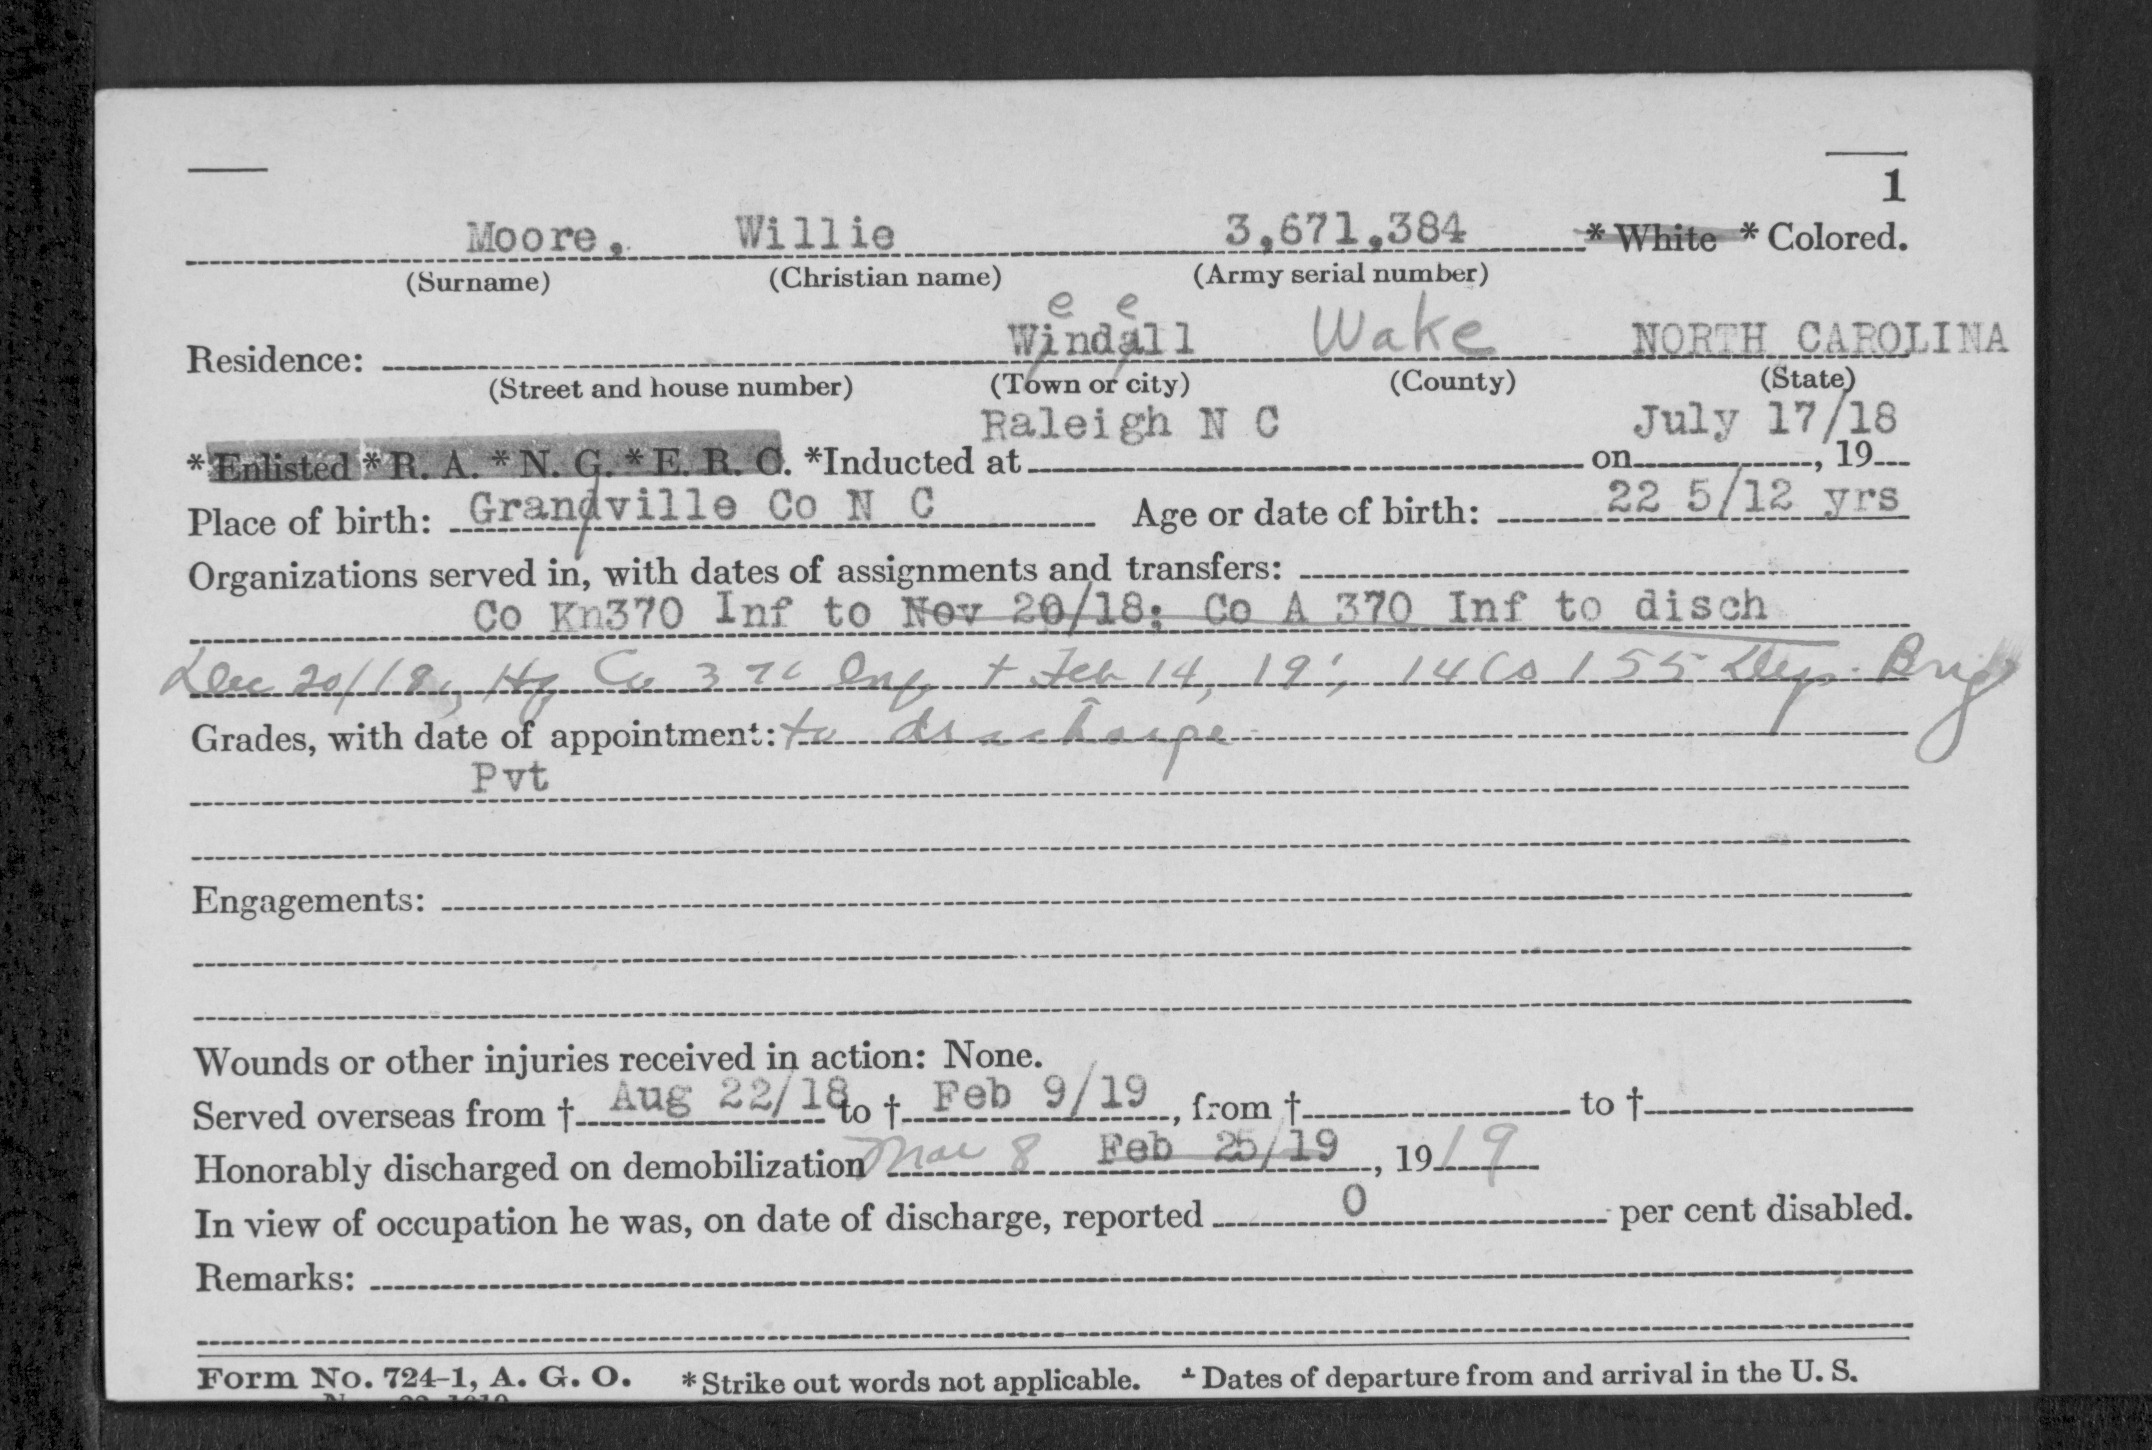 1
Moore, Willie 3,671,384 * White * Colored.
(Surname) (Christian name) (Army serial number)
e e
Residence: Windall Wake NORTH CAROLINA
(Street and house number) (Town or city) (County) (State)
Raleigh N C July 17/18
*Enlisted *R. A. *N. G. *E. R. C. *Inducted at on , 19
Place of birth: Grandville Co N C Age or date of birth: 22 5/12 yrs
Organizations served in, with dates of assignments and transfers:
Co Kn370 Inf to Nov 20/18; Co A 370 Inf to disch
Dec 20/18, Hq Co 370 Inf to Feb 14, 19; 14 Co 155 Dep. Brig
Grades, with date of appointment: to discharge
Pvt
Engagements:
Wounds or other injuries received in action: None.
Served overseas from † Aug 22/18 to † Feb 9/19, from † to †
Honorably discharged on demobilization Mar 8 Feb 25/19, 1919
In view of occupation he was, on date of discharge, reported 0 per cent disabled.
Remarks:
Form No. 724-1, A. G. O. *Strike out words not applicable. † Dates of departure from and arrival in the U. S.